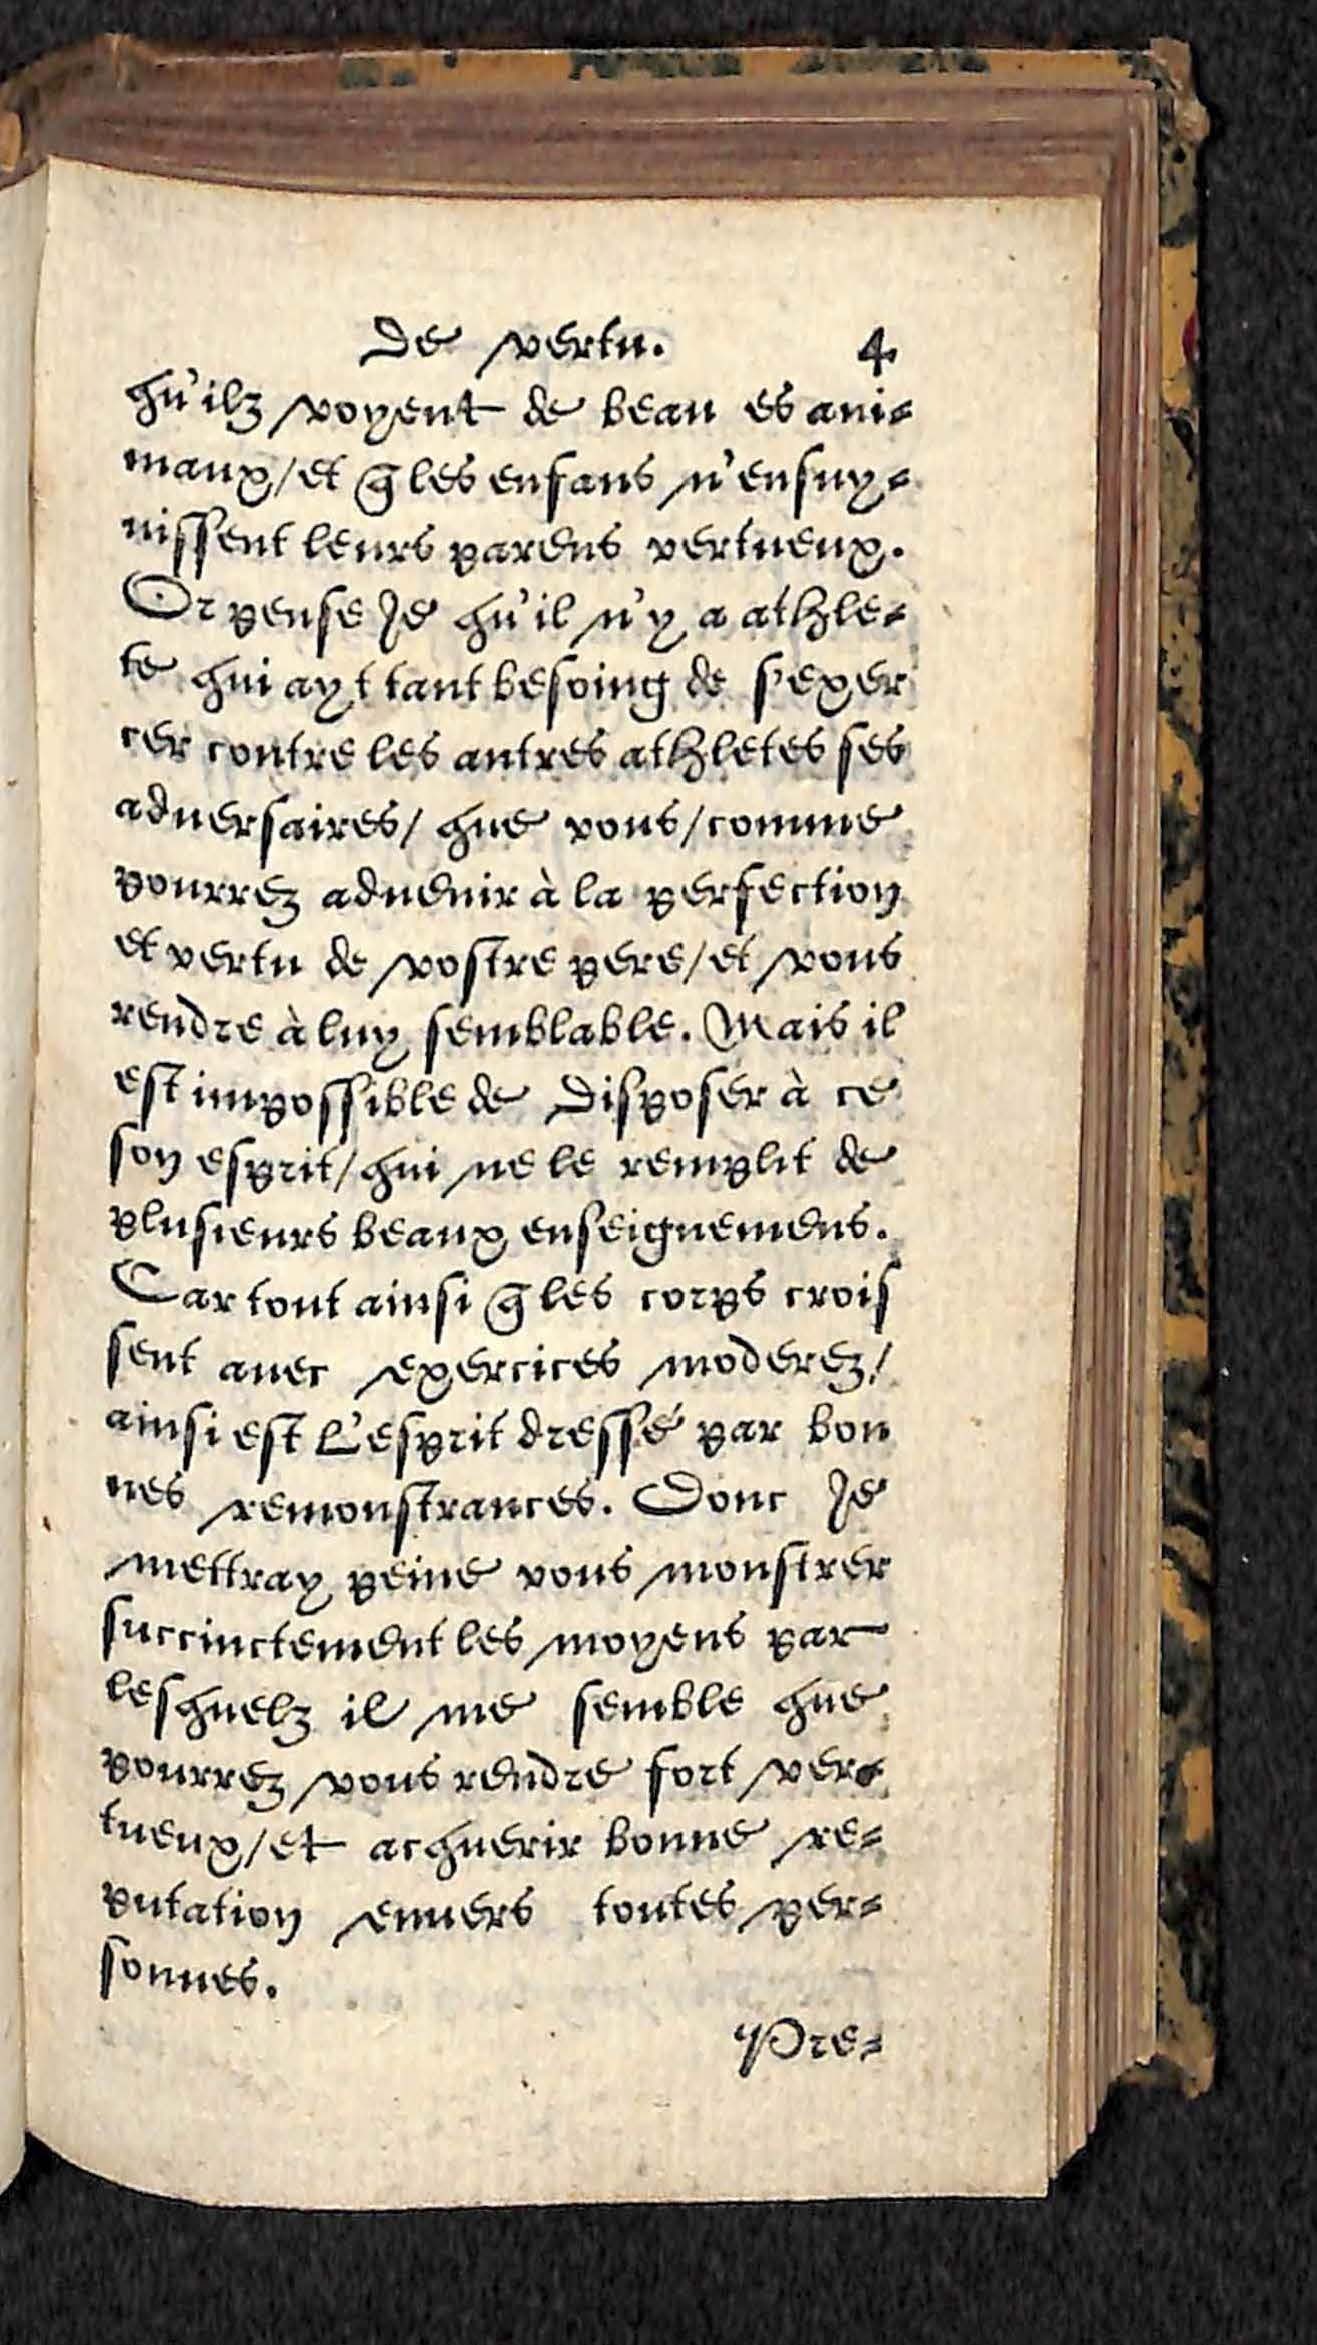 De vertu. 4
qu'ilz voyent de beau es ani-
maux/et q̃ les enfans n'ensuy-
uissent leurs parens vertueux.
Or pense Je qu'il n'y a athle-
te qui ayt tant besoing de s'exer
cer contre les autres athletes ses
aduersaires/ que vous/comme
pourrez aduenir à la perfection
et vertu de vostre pere/et vous
rendre à luy semblable. Mais il
est impossible de disposer à ce
son esprit/qui ne le remplit de
plusieurs beaux enseignemens.
Car tout ainsi q̃ les corps crois
sent auec exercices moderez/
ainsi est l'esprit dressé par bon
nes remonstrances. Donc Je
mettray peine vous monstrer
succinctement les moyens par
lesquelz il me semble que
pourrez vous rendre fort ver-
tueux/et acquerir bonne re-
putation enuers toutes per-
sonnes.
Pre-